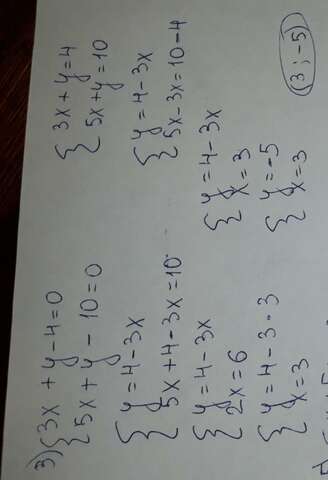 3) { 3x + y - 4 = 0
{ 5x + y - 10 = 0
{ 3x + y = 4
{ 5x + y = 10
{ y = 4 - 3x
{ 5x + 4 - 3x = 10
{ y = 4 - 3x
{ 5x - 3x = 10 - 4
{ y = 4 - 3x
{ 2x = 6
{ y = 4 - 3x
{ x = 3
{ y = 4 - 3 · 3
{ x = 3
{ y = -5
{ x = 3
(3 ; -5)